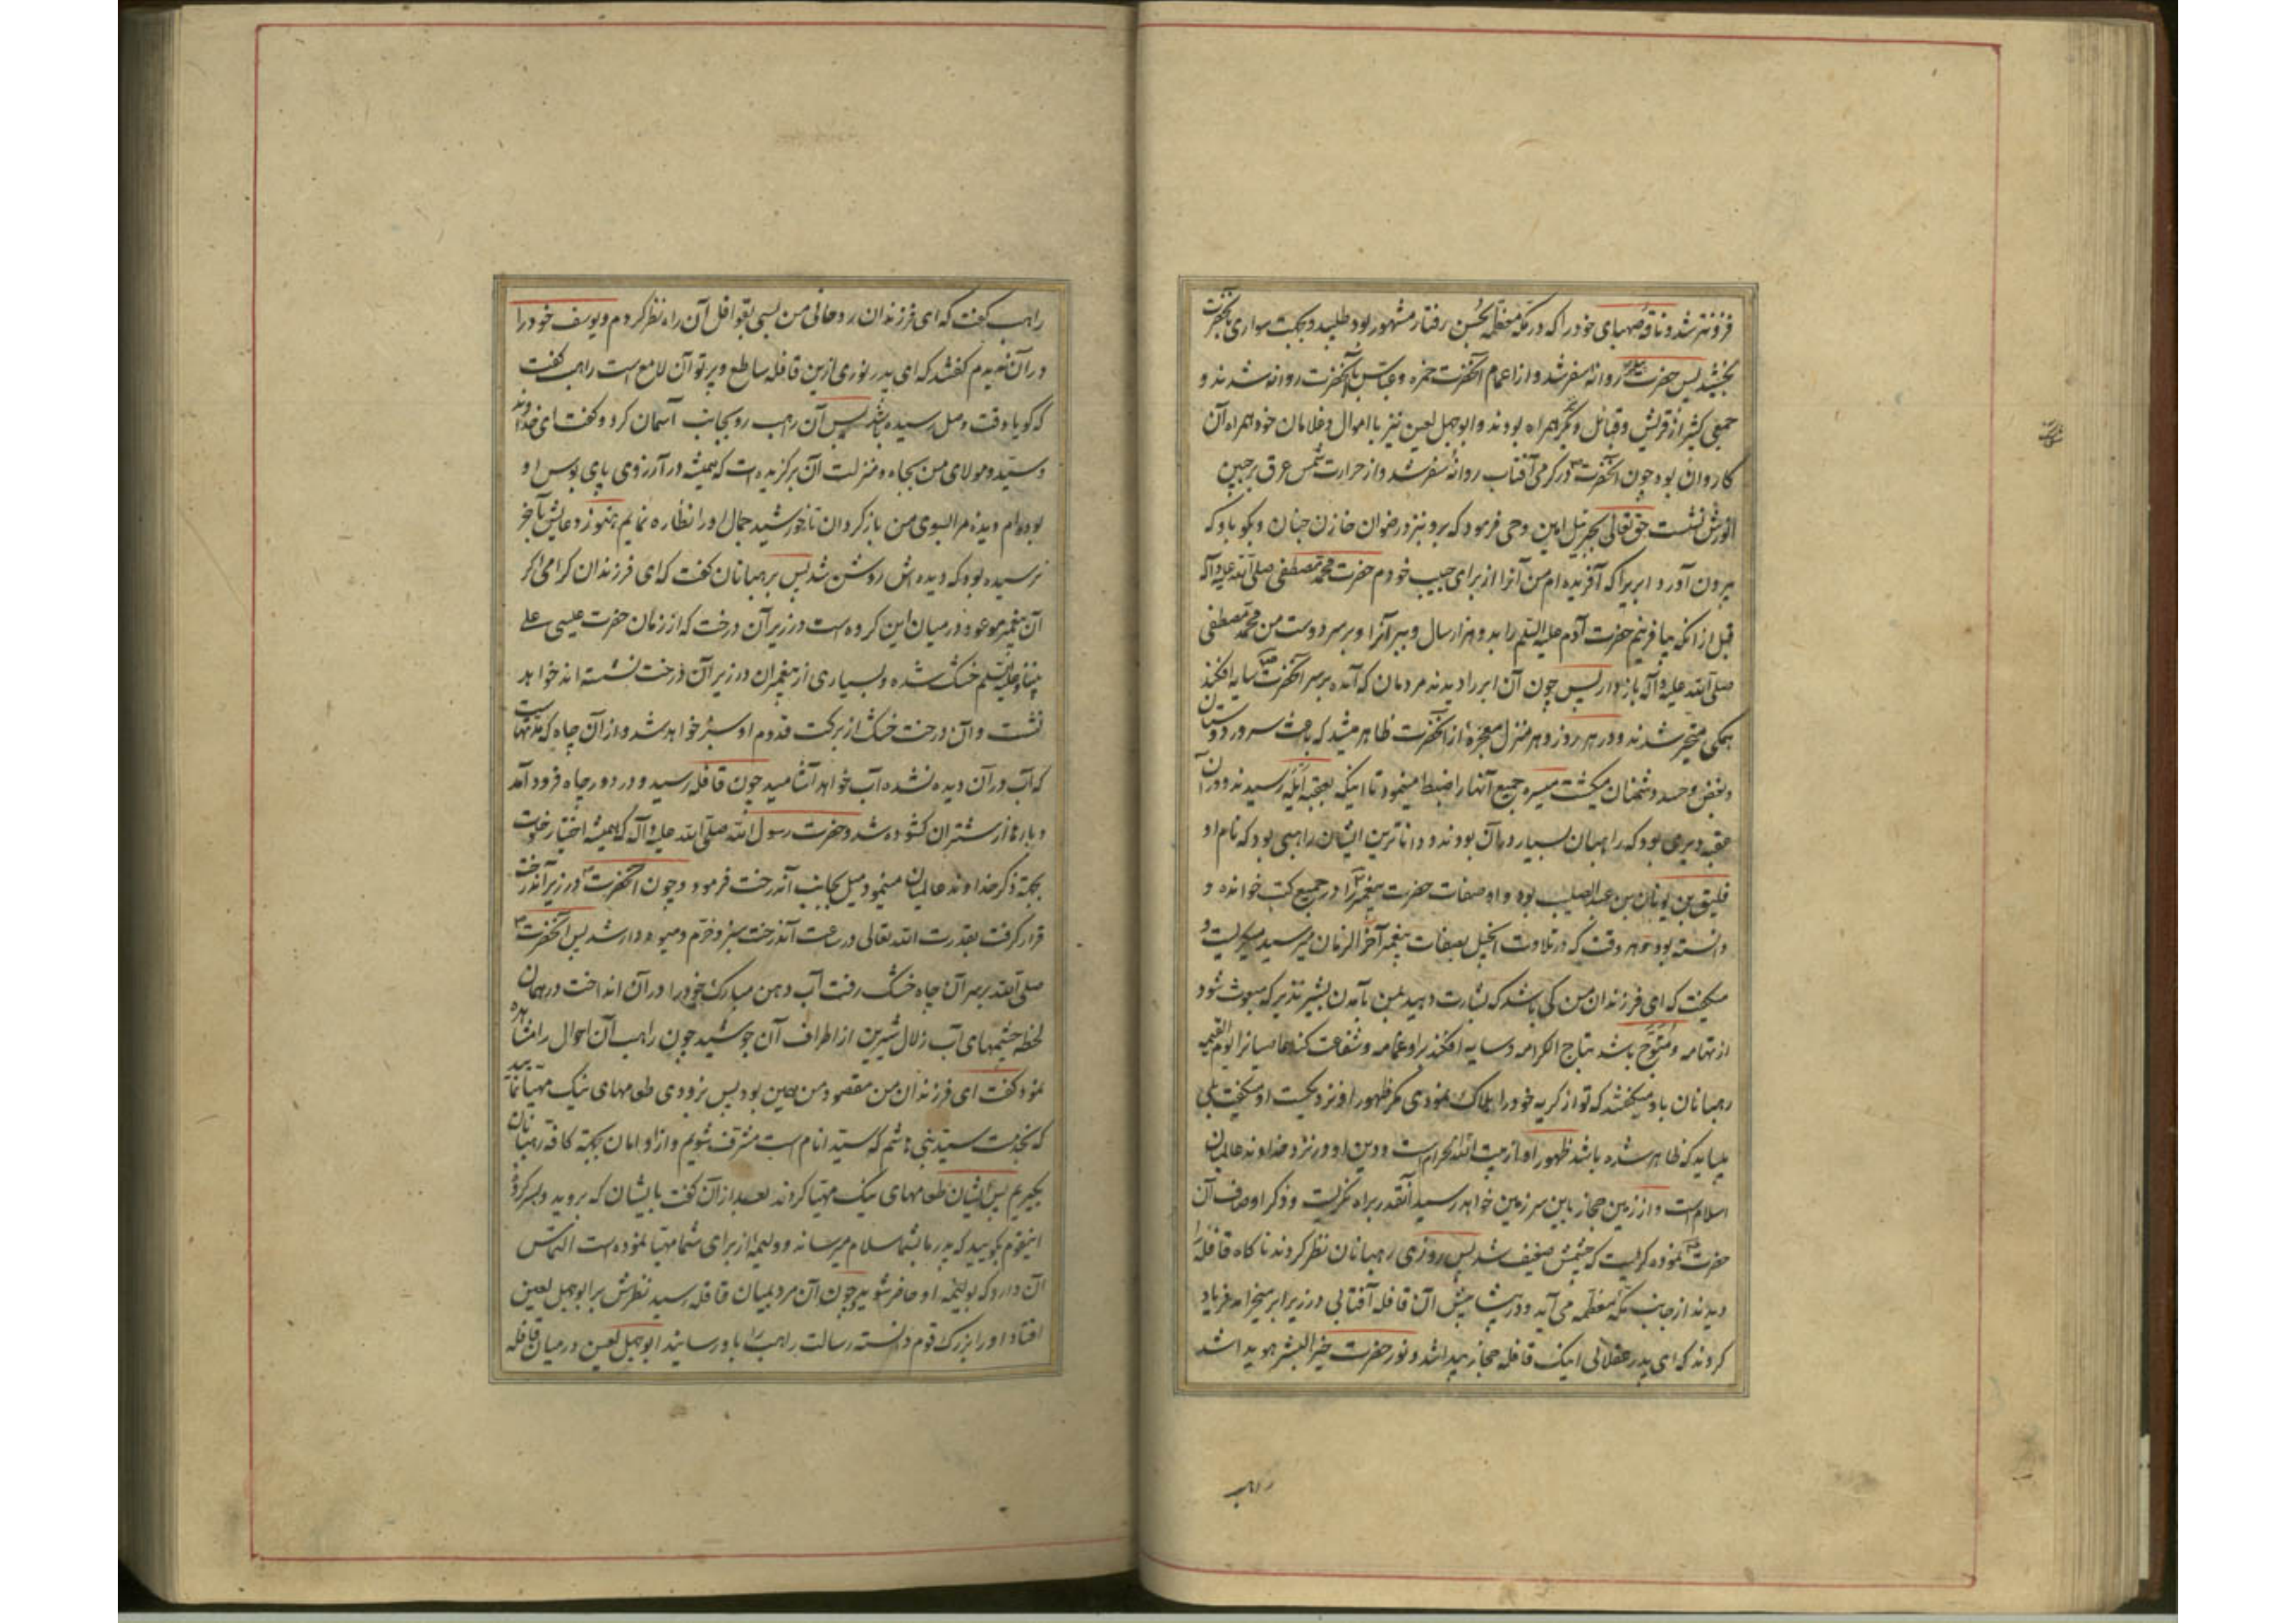 فزونتر شد و ناقهٔ صهبای خود را که در مکهٔ معظمه بحسن رفتار مشهور بود طلبید و بجهت سواری آنحضرت
بخشید پس حضرت روانهٔ سفر شد و از اعمام آنحضرت حمزه و عباس با آنحضرت روانه شدند و
جمعی کثیر از قریش و قبائل دیگر همراه بودند و ابوجهل لعین نیز با اموال و غلامان خود همراه آن
کاروان بود چون آنحضرت در گرمی آفتاب روانهٔ سفر شد و از حرارت شمس عرق بر جبین
انورش نشست حق تعالی بجبرئیل امین وحی فرمود که برو بنزد رضوان خازن جنان و بگو باو که
بیرون آورد ابریرا که آفریده ام من آنرا از برای حبیب خودم حضرت محمد مصطفی صلی الله علیه و آله
قبل از انکه بیافرینم حضرت آدم علیه السلم را بدو هزار سال و ببر آنرا و بر سر دوست من محمد مصطفی
صلی الله علیه و آله باز دار پس چون آن ابر را دیدند مردمان که آمده بر سر آنحضرت سایه افکند
همکی متحیر شدند و در هر روز و هر منزل معجزهٔ از آنحضرت ظاهر میشد که باعث سرور دوستان
و بغض و حسد دشمنان میکشت میسره جمیع آنها را ضبط مینمود تا اینکه بعقبه ایله رسیدند و در آن
عقبه دیری بود که راهبان بسیار در آن بودند و داناترین ایشان راهبی بود که نام او
فلیق بن یونان بن عبدالصلیب بود و او صفات حضرت پیغمبر را در جمیع کتب خوانده و
دانسته بود و هر وقت که در تلاوت انجیل بصفات پیغمبر آخر الزمان میرسید میکریست و
میکفت که ای فرزندان من کی باشد که بشارت دهید بمن بآمدن بشیر نذیر که مبعوث شود
از تهامه و متوج باشد بتاج الکرامه و سایه افکند بر او غمامه و شفاعت کند عاصیانرا یوم القیمه
رهبانان باو میکفتند که تو از کریه خود را هلاک نمودی مکر ظهور او نزدیکست او میکفت بلی
میباید که ظاهر شده باشد ظهور او از بیت الله الحرام است و دین او در نزد خداوند عالمیان
اسلام است و از زمین حجاز باین سرزمین خواهد رسید آنقدر براه نکریست و ذکر اوصاف آن
حضرت نموده کریست که چشمش ضعیف شد پس روزی رهبانان نظر کردند ناکاه قافله را
دیدند از جانب مکهٔ معظمه می آید و در پیشاپیش آن قافله آفتابی در زیر ابر میخرامد فریاد
کردند که ای پدر عقلانی اینک قافله حجاز پیدا شد و نور حضرت خیر البشر هویدا شد
راهب
راهب کفت که ای فرزندان روحانی من بسی بقوافل آن راه نظر کردم و یوسف خود را
در آن ندیدم کفتند که ای پدر نوری ازین قافله ساطع و پرتو آن لامع است راهب کفت
که کویا وقت وصل رسیده باشد پس آن راهب رو بجانب آسمان کرد و کفت ای خداوند
و سید و مولای من بجاه و منزلت آن برکزیده ات که همیشه در آرزوی پای بوس او
بوده ام دیده مرا بسوی من باز کردان تا خورشید جمال او را نظاره نمایم هنوز دعایش بآخر
نرسیده بود که دیده اش روشن شد پس برهبانان کفت که ای فرزندان کرامی اکر
آن پیغمبر موعود در میان این کروه است در زیر آن درخت که از زمان حضرت عیسی علی
نبینا و علیه السلم خشک شده و بسیاری از پیغمبران در زیر آن درخت نشسته اند خواهد
نشست و آن درخت خشک از برکت قدوم او سبز خواهد شد و از آن چاه که مدتهاست
که آب در آن دیده نشده آب خواهد آشامید چون قافله رسید و در دور چاه فرود آمد
و بارها از شتران کشوده شد و حضرت رسول الله صلی الله علیه و آله که همیشه اختیار خلوت
بجهة ذکر خداوند عالمیان مینمود میل بجانب آندرخت فرمود و چون آنحضرت در زیر آندرخت
قرار کرفت بقدرت الله تعالی در ساعت آندرخت سبز و خرم و میوه دار شد پس آنحضرت
صلی الله بر سر آن چاه خشک رفت آب دهن مبارک خود را در آن انداخت در همان
لحظه چشمهای آب زلال شیرین از اطراف آن جوشید چون راهب آن احوال را مشاهده
نمود کفت ای فرزندان من مقصود من همین بود پس بزودی طعامهای نیک مهیا نمائید
که بخدمت سید بنی هاشم که سید انام است مشرف شویم و از او امان بجهة کافه رهبانان
بکیریم پس ایشان طعامهای نیک مهیا کردند بعد از آن کفت بایشان که بروید و بسر کردهٔ
اینقوم بکویید که پدر ما بشما سلام میرساند و ولیمهٔ از برای شما مهیا نموده است التماس
آن دارد که بولیمهٔ او حاضر شوید چون آن مرد بمیان قافله رسید نظرش بر ابوجهل لعین
افتاد او را بزرک قوم دانسته رسالت راهب را باو رسانید ابوجهل لعین در میان قافله